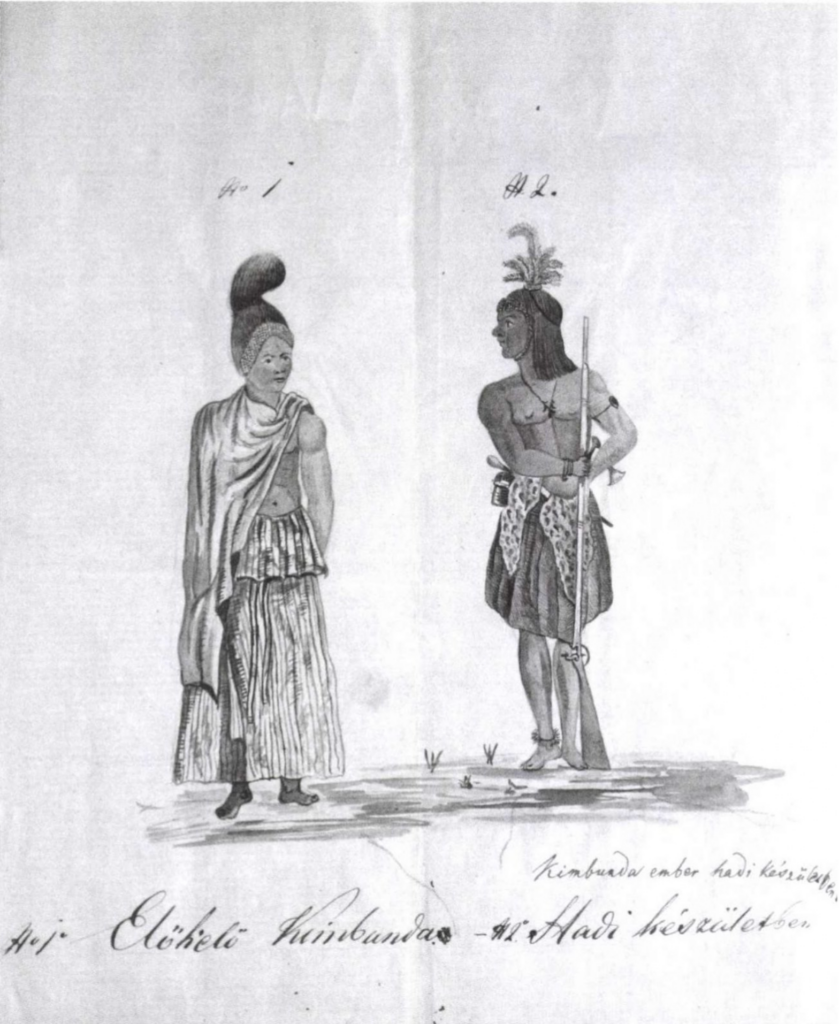 No 1
N 2.
Kimbunda ember hadi készületben.
No 1. Előkelő Kimbunda. - N2. Hadi készületben